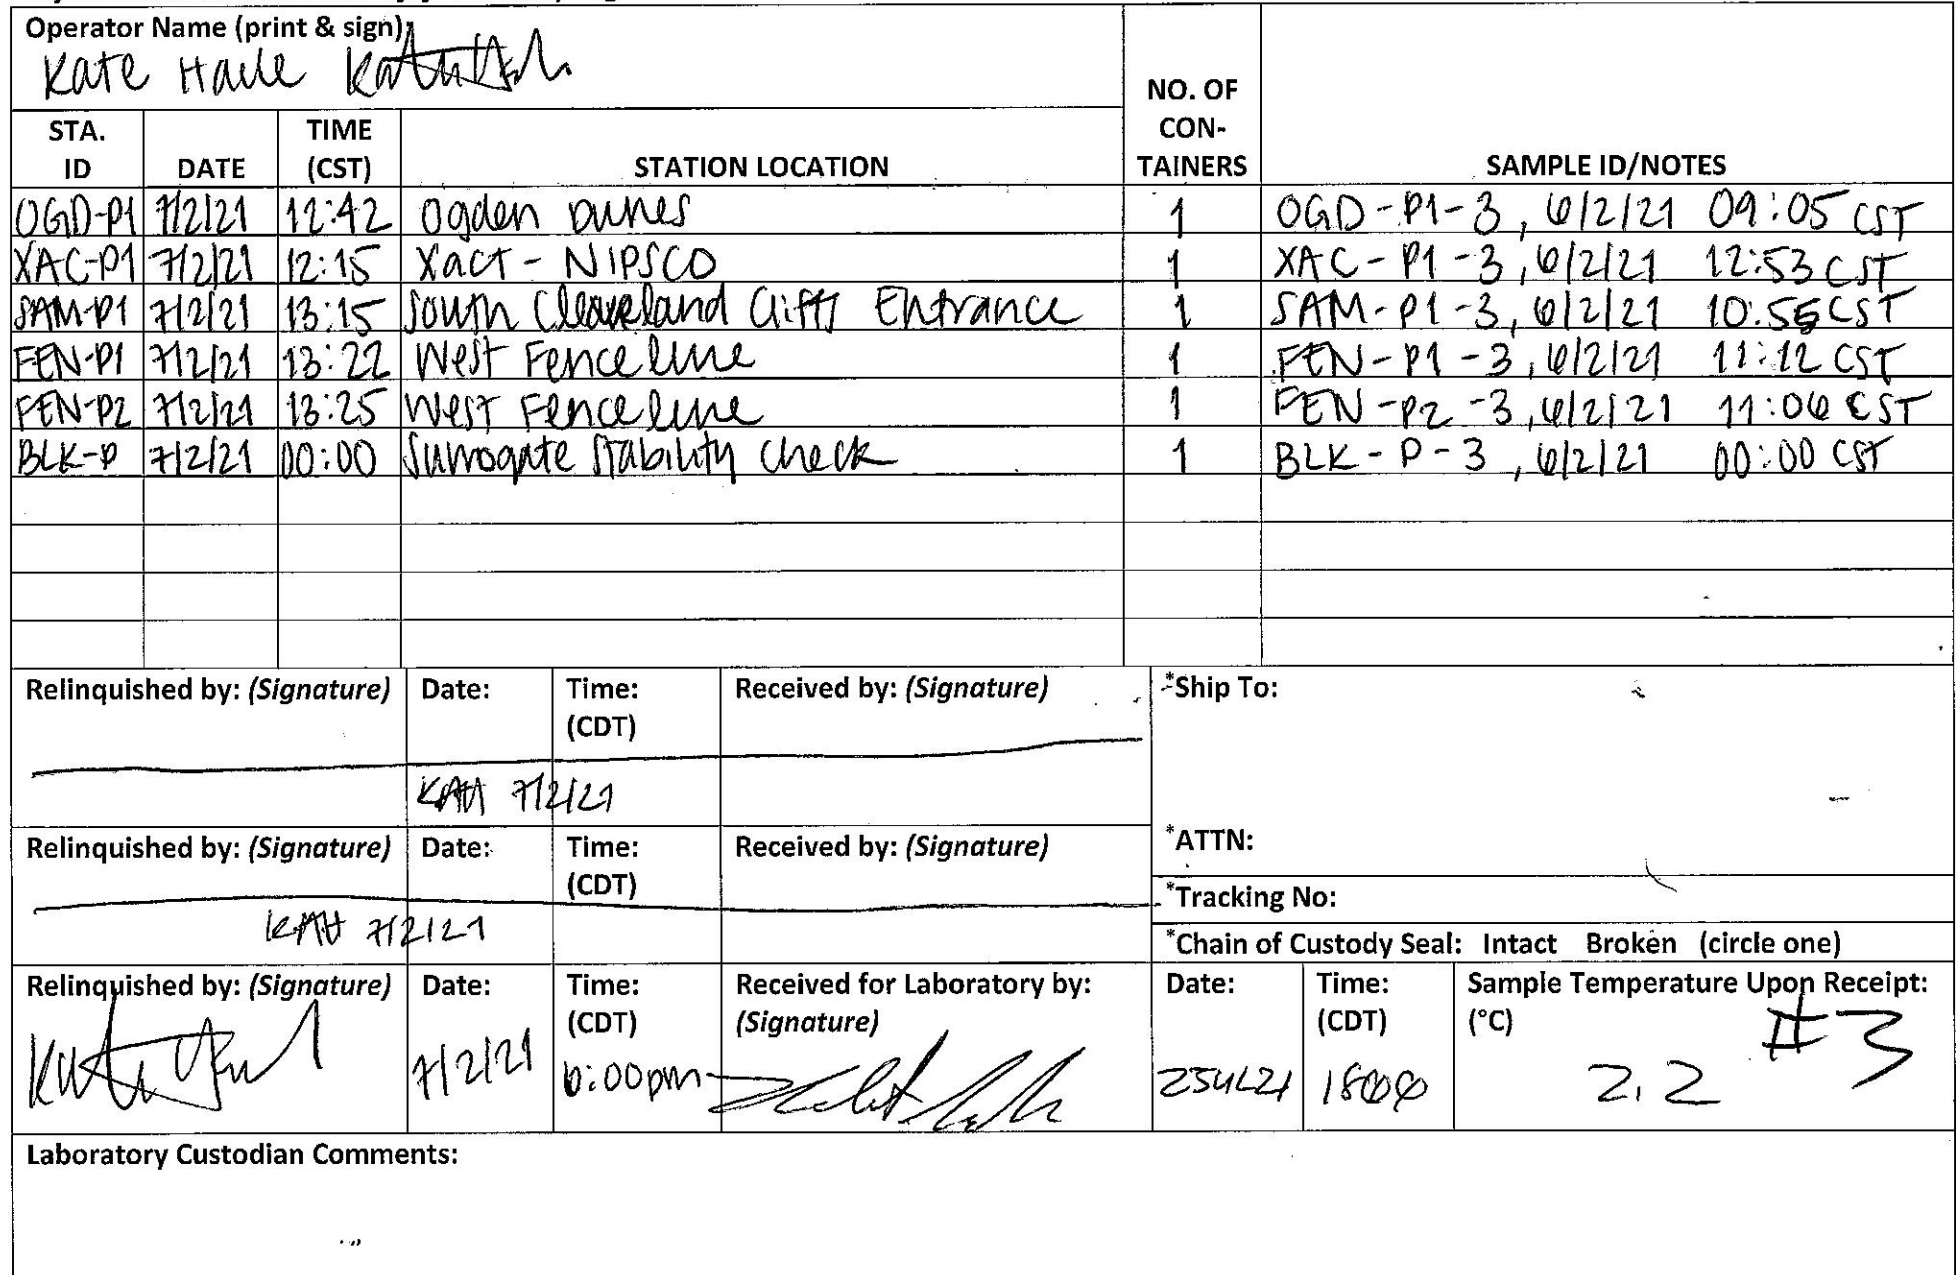 Operator Name (print & sign):
Kate Haile
STA. ID | DATE | TIME (CST) | STATION LOCATION | NO. OF CON-TAINERS | SAMPLE ID/NOTES
OGD-P1 | 7/2/21 | 12:42 | Ogden Dunes | 1 | OGD-P1-3, 6/2/21 09:05 CST
XAC-P1 | 7/2/21 | 12:15 | Xact - NIPSCO | 1 | XAC-P1-3, 6/2/21 12:53 CST
SAM-P1 | 7/2/21 | 13:15 | South Cleaveland Cliffs Entrance | 1 | SAM-P1-3, 6/2/21 10:55 CST
FEN-P1 | 7/2/21 | 13:22 | West Fenceline | 1 | FEN-P1-3, 6/2/21 11:12 CST
FEN-P2 | 7/2/21 | 13:25 | West Fenceline | 1 | FEN-P2-3, 6/2/21 11:06 CST
BLK-P | 7/2/21 | 00:00 | Surrogate Stability Check | 1 | BLK-P-3, 6/2/21 00:00 CST
Relinquished by: (Signature) | Date: | Time: (CDT) | Received by: (Signature) | *Ship To:
KAH 7/2/21
Relinquished by: (Signature) | Date: | Time: (CDT) | Received by: (Signature) | *ATTN:
*Tracking No:
KAH 7/2/21
*Chain of Custody Seal: Intact Broken (circle one)
Relinquished by: (Signature) | Date: | Time: (CDT) | Received for Laboratory by: (Signature) | Date: | Time: (CDT) | Sample Temperature Upon Receipt: (°C)
7/2/21 | 6:00pm | 2JUL21 | 1800 | 2.2 #3
Laboratory Custodian Comments: